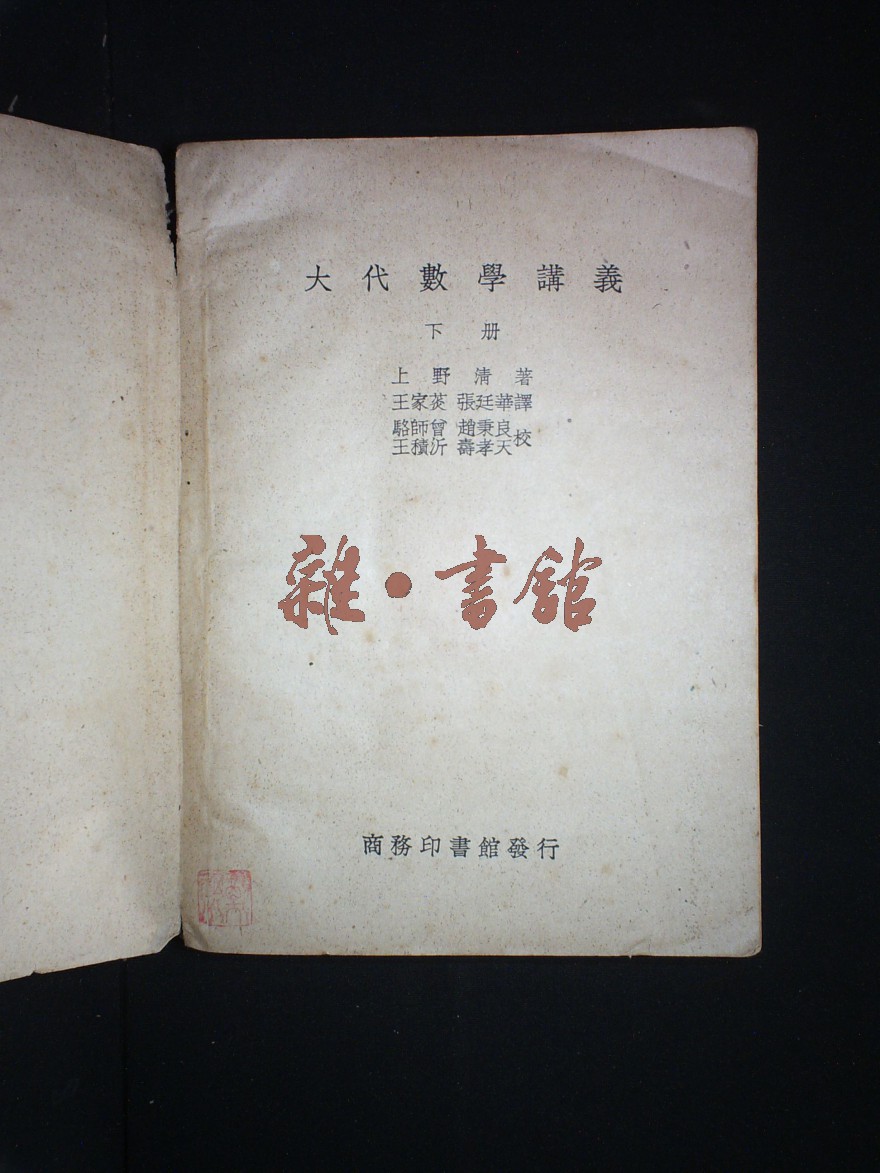 大代數學講義
下册
上野清著
王家菼 張廷華譯
駱師曾 趙秉良
王積沂 壽孝天校
雜·書館
商務印書館發行